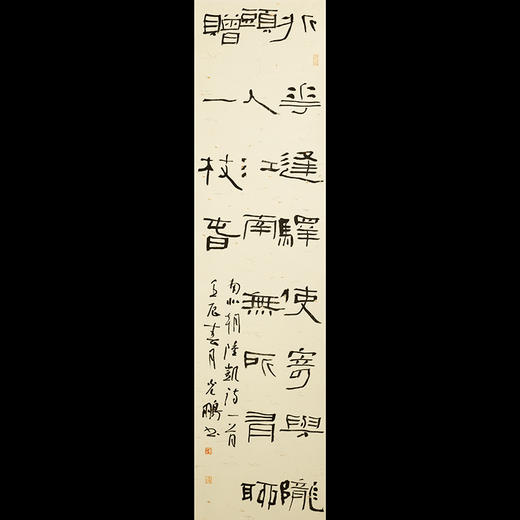 折花逢驛使寄與隴
頭人江南無所有聊
贈一枝春
南北朝陸凱詩一首
壬辰春月光鵬书